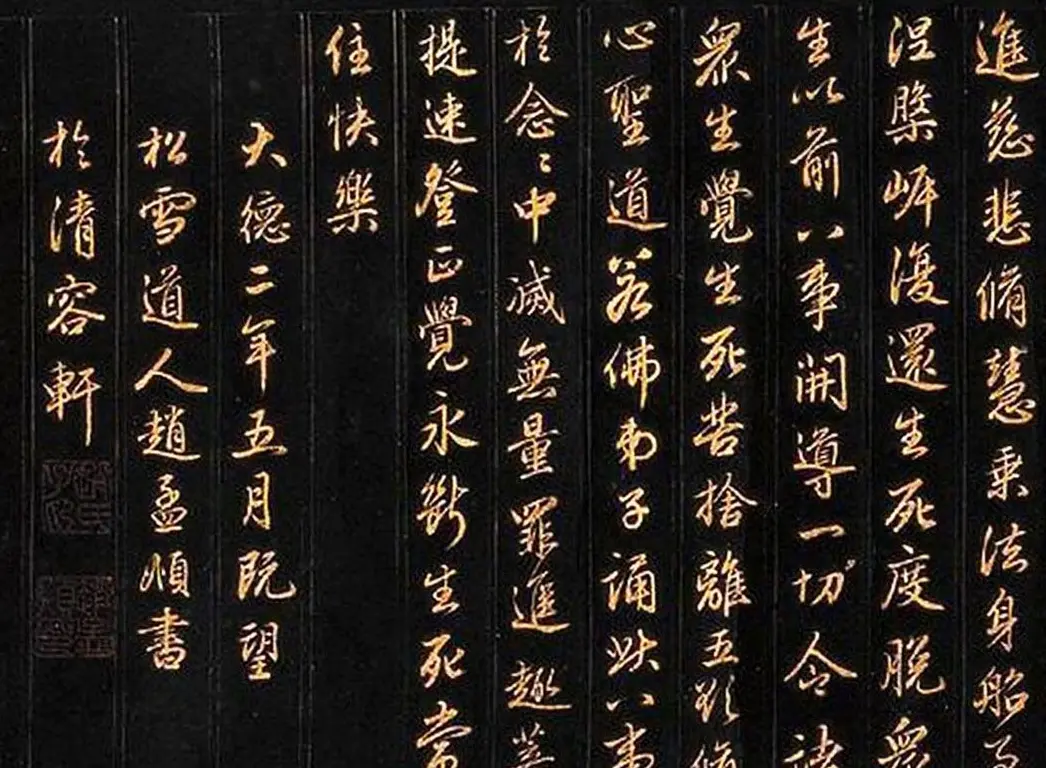 進慈悲脩慧乘法身船至
涅槃岸復還生死度脫眾
生以前八事開導一切令諸
眾生覺生死苦捨離五欲脩
心聖道若佛弟子誦此八事
於念〻中滅無量罪進趣菩
提速登正覺永斷生死常
住快樂
大德二年五月既望
松雪道人趙孟頫書
於清容軒
趙氏子昂